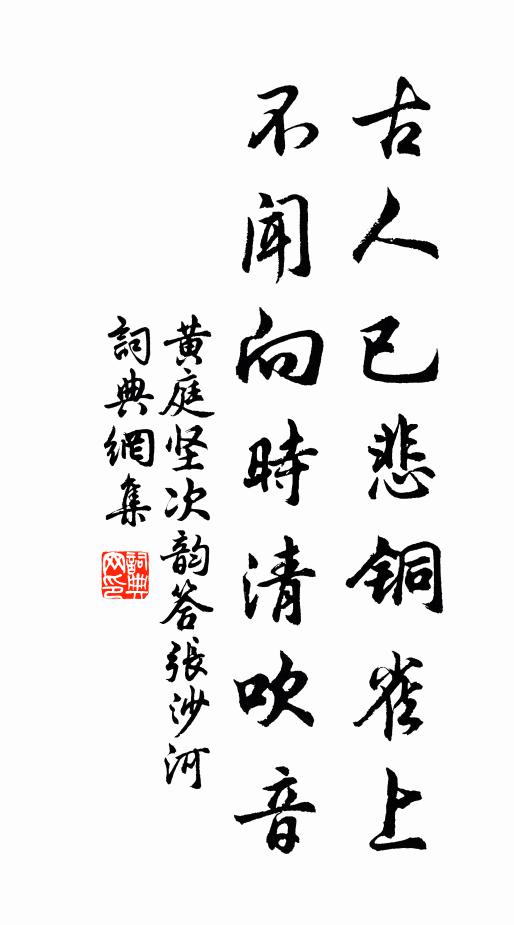 古人已悲銅雀上
不闻向時清吹音
黄庭坚次韵答張沙河
詞典網集
詞典
网印